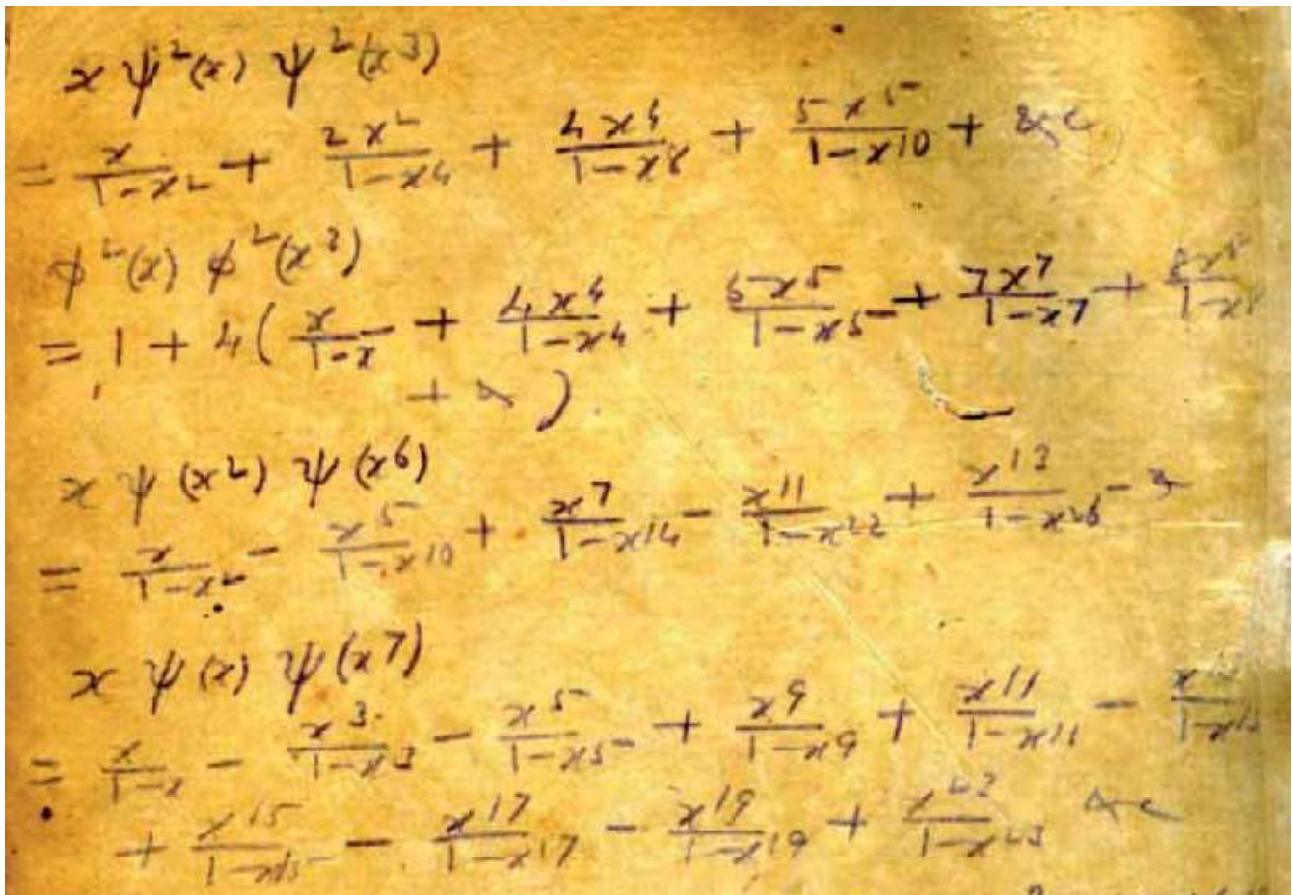 x ψ²(x) ψ²(x³)
= x/(1-x²) + 2x²/(1-x⁴) + 4x⁴/(1-x⁸) + 5x⁵/(1-x¹⁰) + &c
φ²(x) φ²(x³)
= 1 + 4( x/(1-x) + 4x⁴/(1-x⁴) + 5x⁵/(1-x⁵) + 7x⁷/(1-x⁷) + 8x⁸/(1-x⁸)
+ & ).
x ψ(x²) ψ(x⁶)
= x/(1-x²) - x⁵/(1-x¹⁰) + x⁷/(1-x¹⁴) - x¹¹/(1-x²²) + x¹³/(1-x²⁶) - &
x ψ(x) ψ(x⁷)
= x/(1-x) - x³/(1-x³) - x⁵/(1-x⁵) + x⁹/(1-x⁹) + x¹¹/(1-x¹¹) - x¹³/(1-x¹³)
+ x¹⁵/(1-x¹⁵) - x¹⁷/(1-x¹⁷) - x¹⁹/(1-x¹⁹) + x²³/(1-x²³) &c